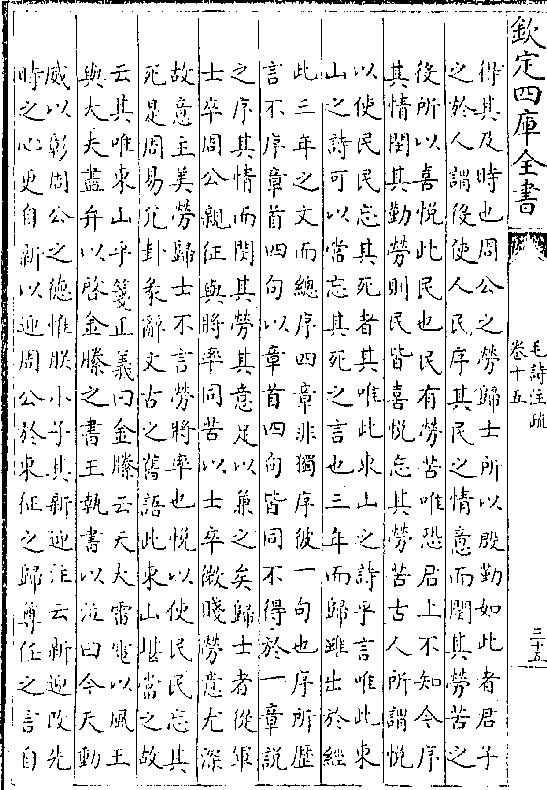 欽定四庫全書
毛詩注疏
卷十五
三十五
得其及時也周公之勞歸士所以殷勤如此者君子
之於人謂役使人民序其民之情意而閔其勞苦之
役所以喜悅此民也民有勞苦唯恐君上不知今序
其情閔其勤勞則民皆喜悅忘其勞苦古人所謂悅
以使民民忘其死者其唯此東山之詩乎言唯此東
山之詩可以當忘其死之言也三年而歸雖出於經
此三年之文而總序四章非獨序彼一句也序所歷
言不序章首四句以章首四句皆同不得於一章說
之序其情而閔其勞其意足以兼之矣歸士者從軍
士卒周公親征與將率同苦以士卒微賤勞意尤深
故意主美勞歸士不言勞將率也悅以使民民忘其
死是周易兌卦彖辭文古之舊語此東山堪當之故
云其唯東山乎箋正義曰金縢云天大雷電以風王
與大夫盡弁以啓金縢之書王執書以泣曰今天動
威以彰周公之德惟朕小子其新迎注云新迎改先
時之心更自新以迎周公於東征之歸尊任之言自